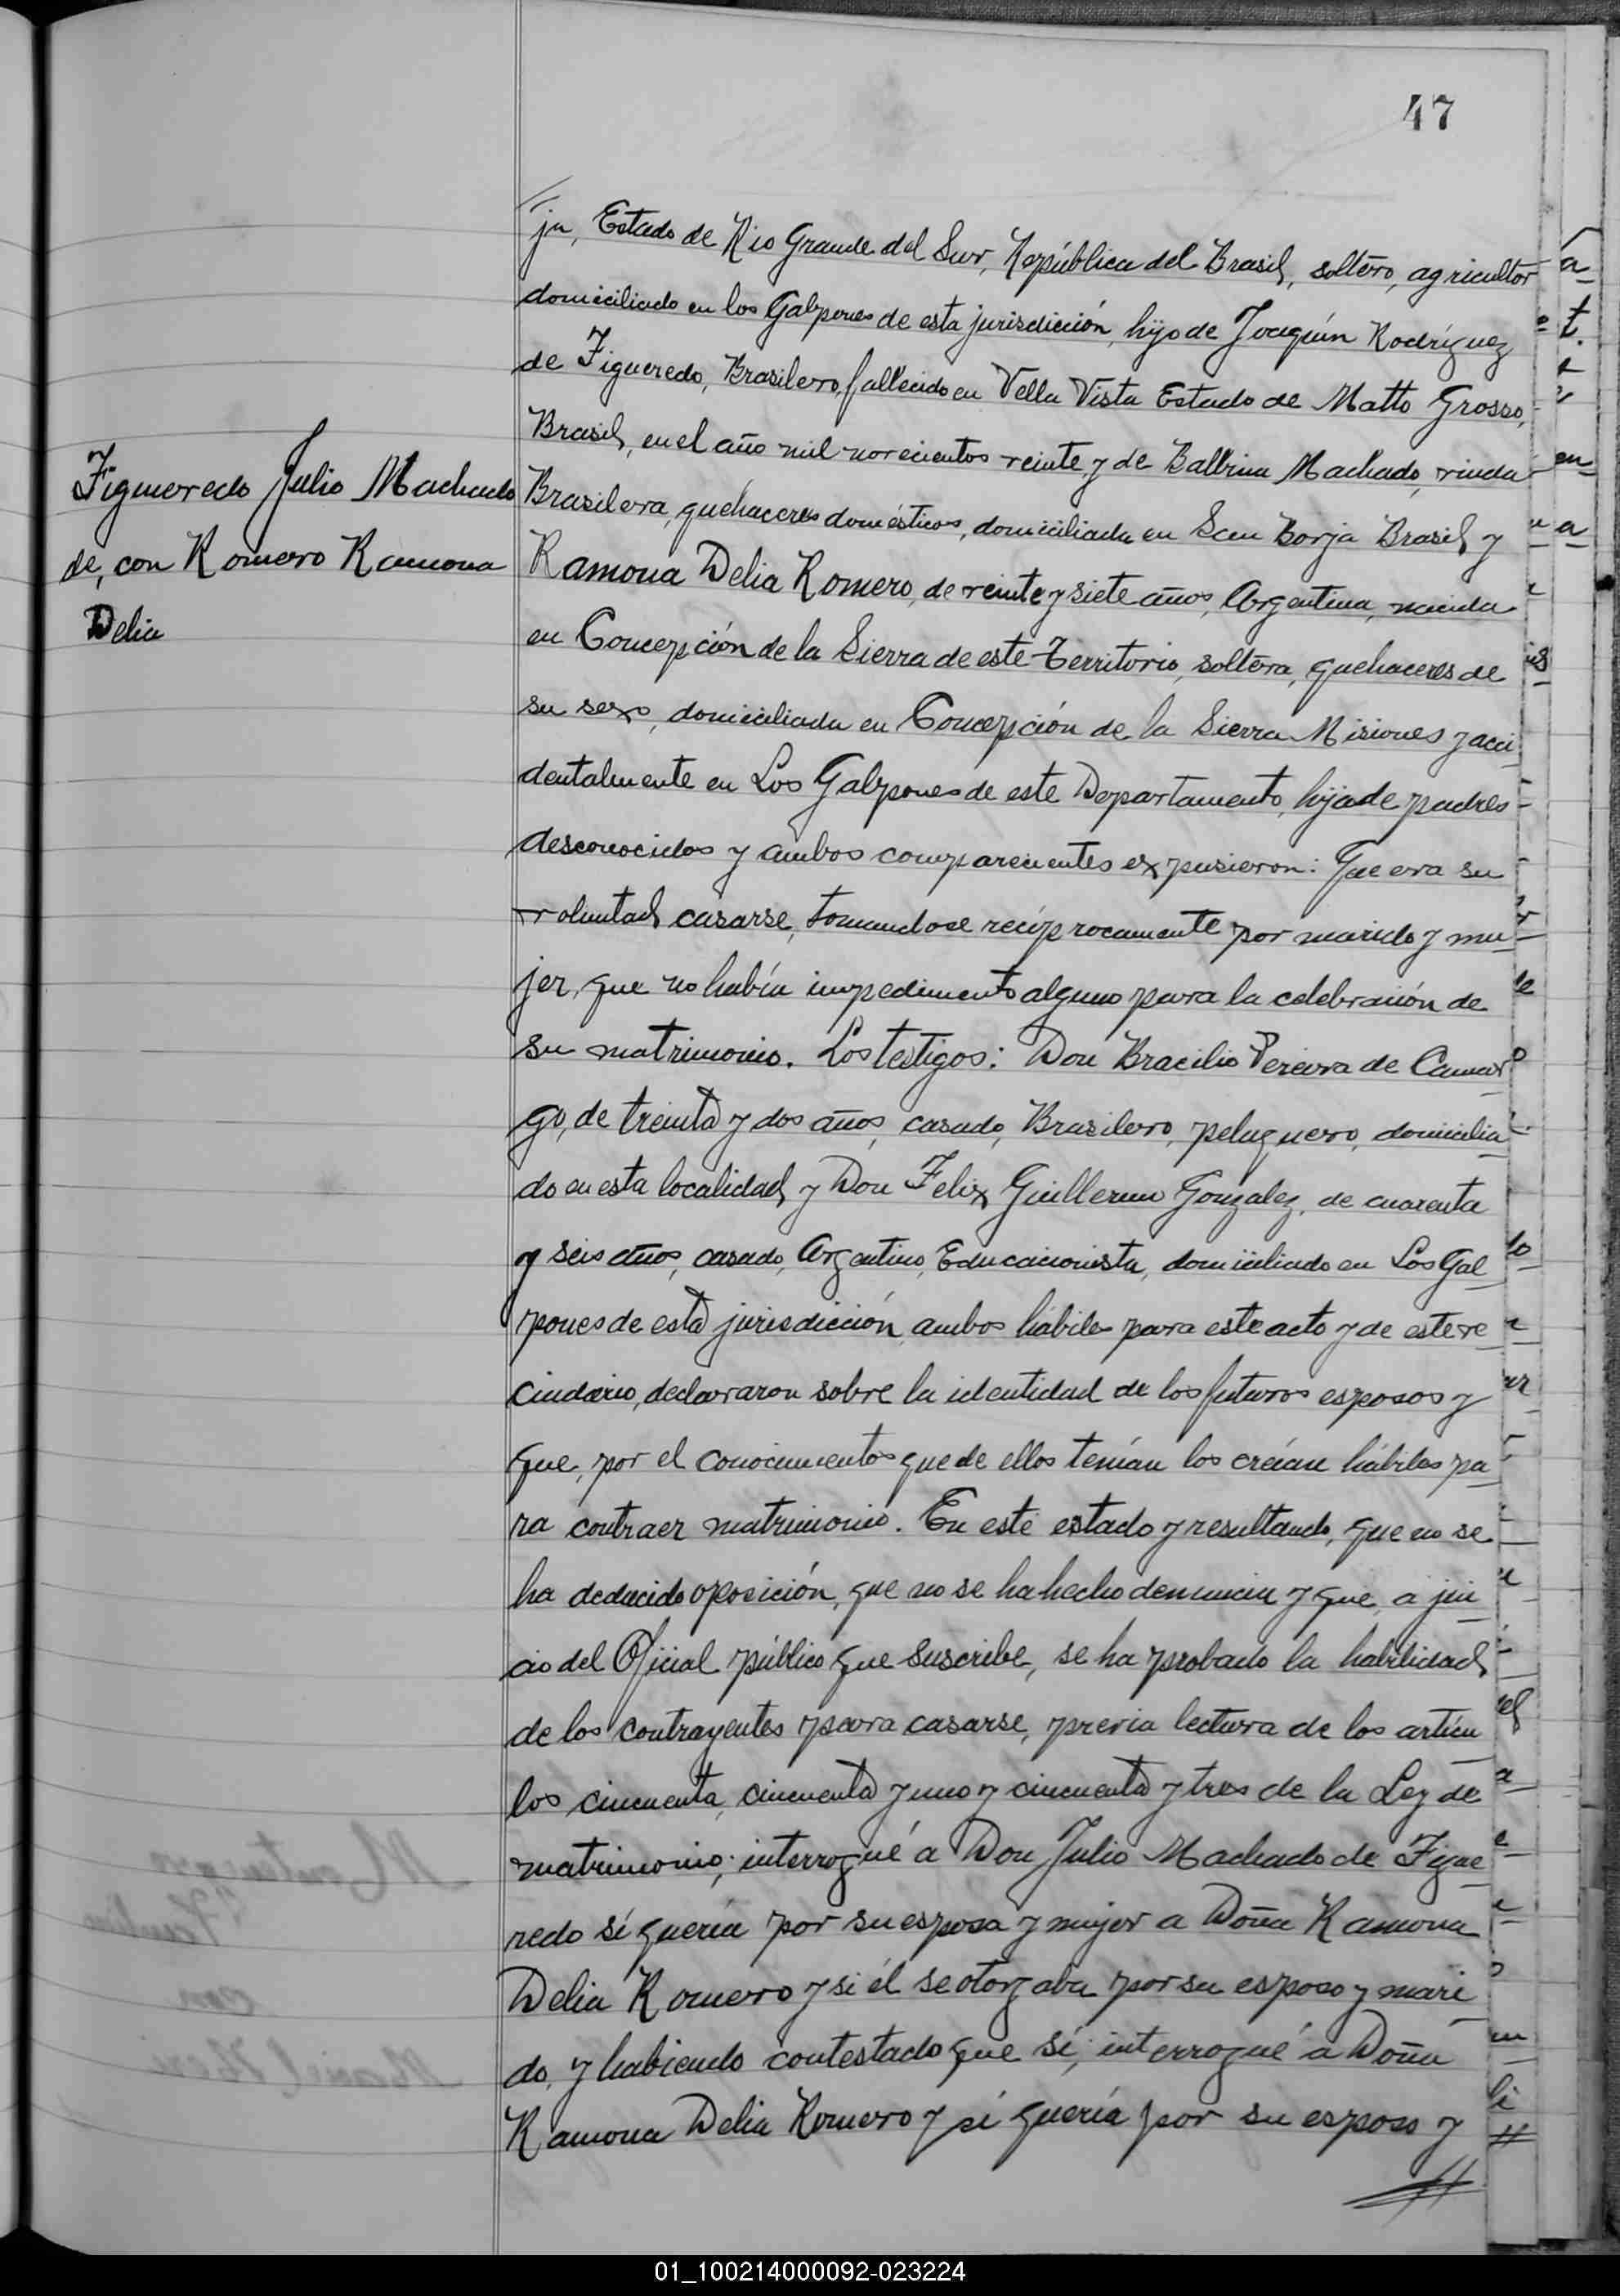 47
ja, Estado de Rio Grande del Sur, República del Brasil, soltero, agricultor
domiciliado en los Galpones de esta jurisdicción, hijo de Joaquín Rodríguez
de Figueredo, Brasilero, fallecido en Vella Vista Estado de Matto Grosso,
Brasil, en el año mil novecientos veinte y de Balbina Machado, viuda
Brasilera, quehaceres domésticos, domiciliada en San Borja Brasil y
Ramona Delia Romero, de veinte y siete años, Argentina, nacida
en Concepción de la Sierra de este Territorio, soltera, quehaceres de
su sexo, domiciliada en Concepción de la Sierra Misiones y acci
dentalmente en Los Galpones de este Departamento, hija de padres
desconocidos y ambos comparecientes expusieron: Que era su
voluntad casarse, tomandose recíprocamente por marido y mu
jer, que no había impedimento alguno para la celebración de
su matrimonio. Los testigos: Don Bracilio Pereira de Camar
go, de treinta y dos años, casado, Brasilero, peluquero, domicilia
do en esta localidad y Don Felix Guillermo Gonzalez, de cuarenta
y seis años, casado, Argentino, Educacionista, domiciliado en Los Gal
pones de esta jurisdicción ambos hábiles para este acto y de este ve
cindario, declararon sobre la identidad de los futuros esposos y
que, por el conocimientos que de ellos tenían los creían hábiles pa
ra contraer matrimonio. En este estado y resultando, que no se
ha deducido oposición, que no se ha hecho denuncia y que, a jui
cio del Oficial público que suscribe, se ha probado la habilidad
de los contrayentes para casarse, previa lectura de los artícu
los cincuenta, cincuenta y uno y cincuenta y tres de la Ley de
matrimonio; interrogué a Don Julio Machado de Figue
redo sí quería por su esposa y mujer a Doña Ramona
Delia Romero y si él se otorgaba por su esposo y mari
do, y habiendo contestado que sí, interrogué a Doña
Ramona Delia Romero y sí quería por su esposo y
Figueredo Julio Machado
de, con Romero Ramona
Delia
01_100214000092-023224